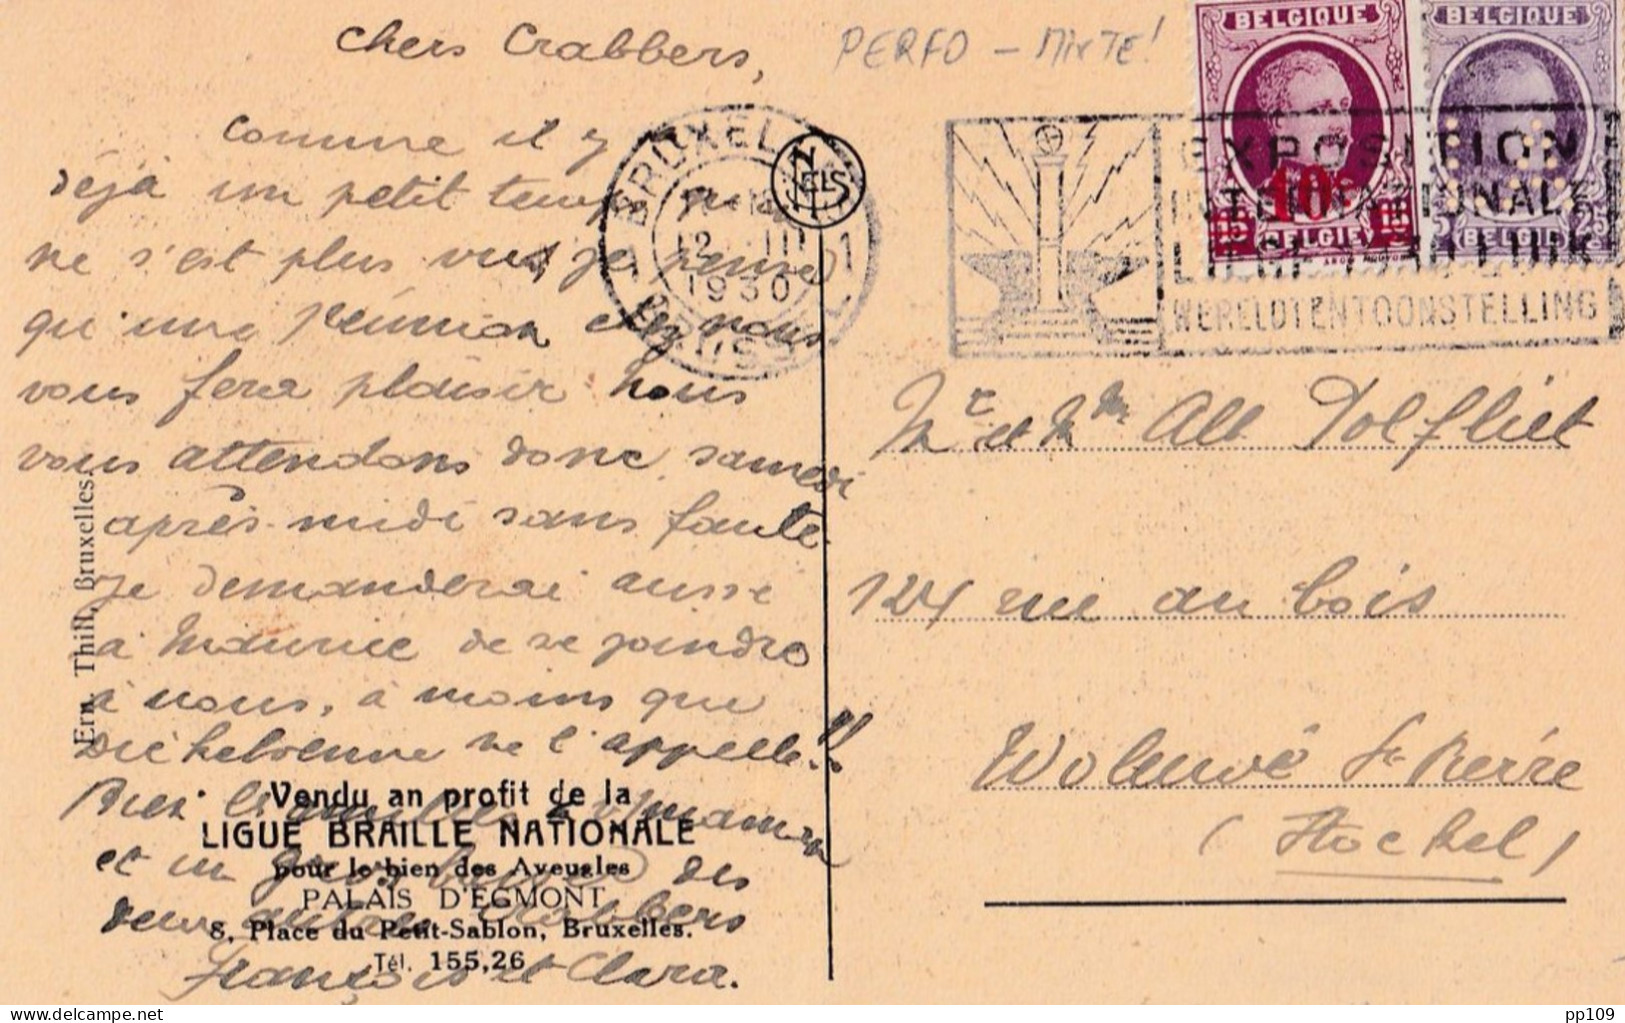 chers Crabbers,
PERFO - MIXTE!
BELGIQUE
BELGIQUE
10c
BELGIË
BELGIË
BRUXELLES
12 III
1930
BRUSSEL
NELS
EXPOSITION
INTERNATIONALE
WERELDTENTOONSTELLING
comme il y
déjà un petit temps qu'on
ne s'est plus vus, je pense
qu'une réunion chez nous
vous fera plaisir nous
vous attendons donc samedi
après-midi sans faute.
Je demanderai aussi
à Maurice de se joindre
à nous, à moins que
ne l'appelle!!
et un gros baiser des
deux autres Crabbers
François et Clara.
Ern. Thill, Bruxelles.
Vendu au profit de la
LIGUE BRAILLE NATIONALE
pour le bien des Aveugles
PALAIS D'EGMONT
8, Place du Petit-Sablon, Bruxelles.
Tél. 155,26
Mr et Mme Alb Dolfliet
124 rue au bois
Woluwé St-Pierre
(Stockel)
pp109